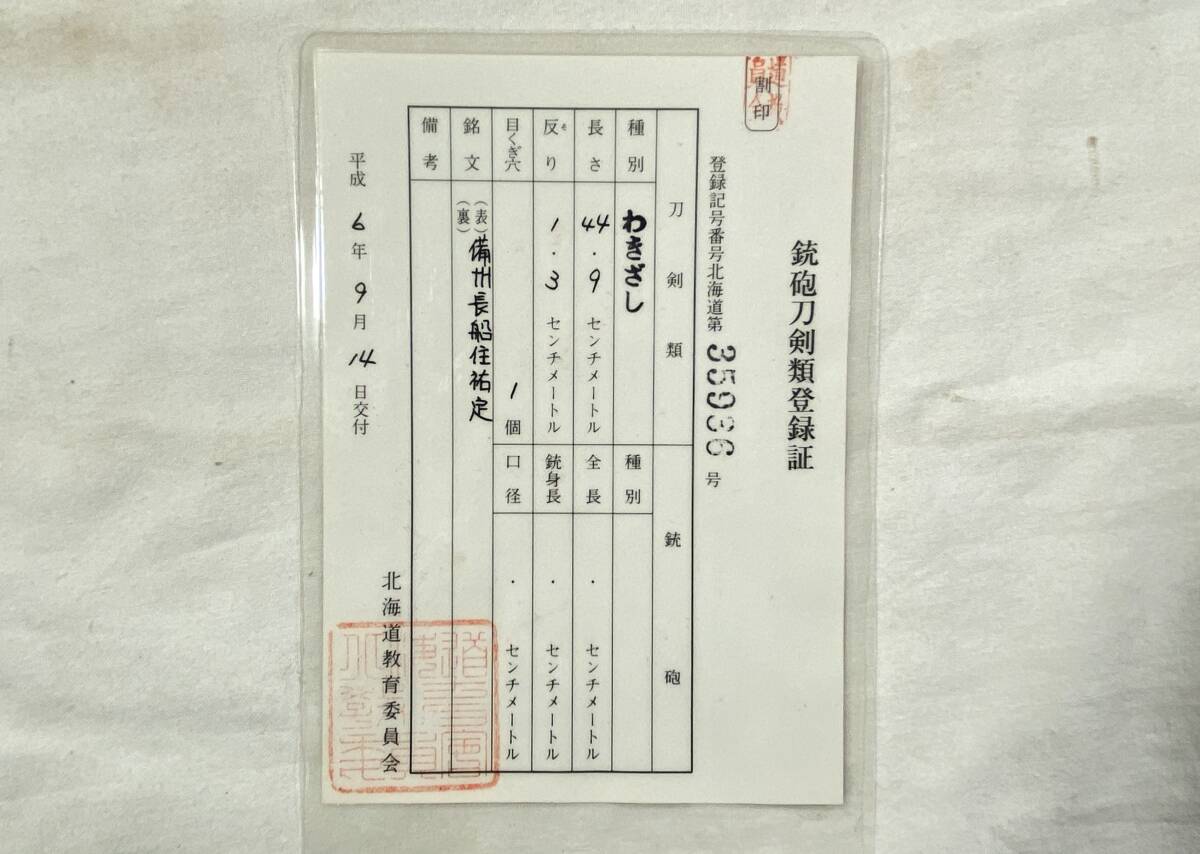 銃砲刀剣類登録証
割印
登録記号番号北海道第35936号
刀剣類
銃砲
種別
わきざし
種別
長さ
44.9センチメートル
全長
・センチメートル
反り
そ
1.3センチメートル
銃身長
・センチメートル
目くぎ穴
1個
口径
・センチメートル
銘文
(表)備州長船住祐定
(裏)
備考
平成6年9月14日交付
北海道教育委員会